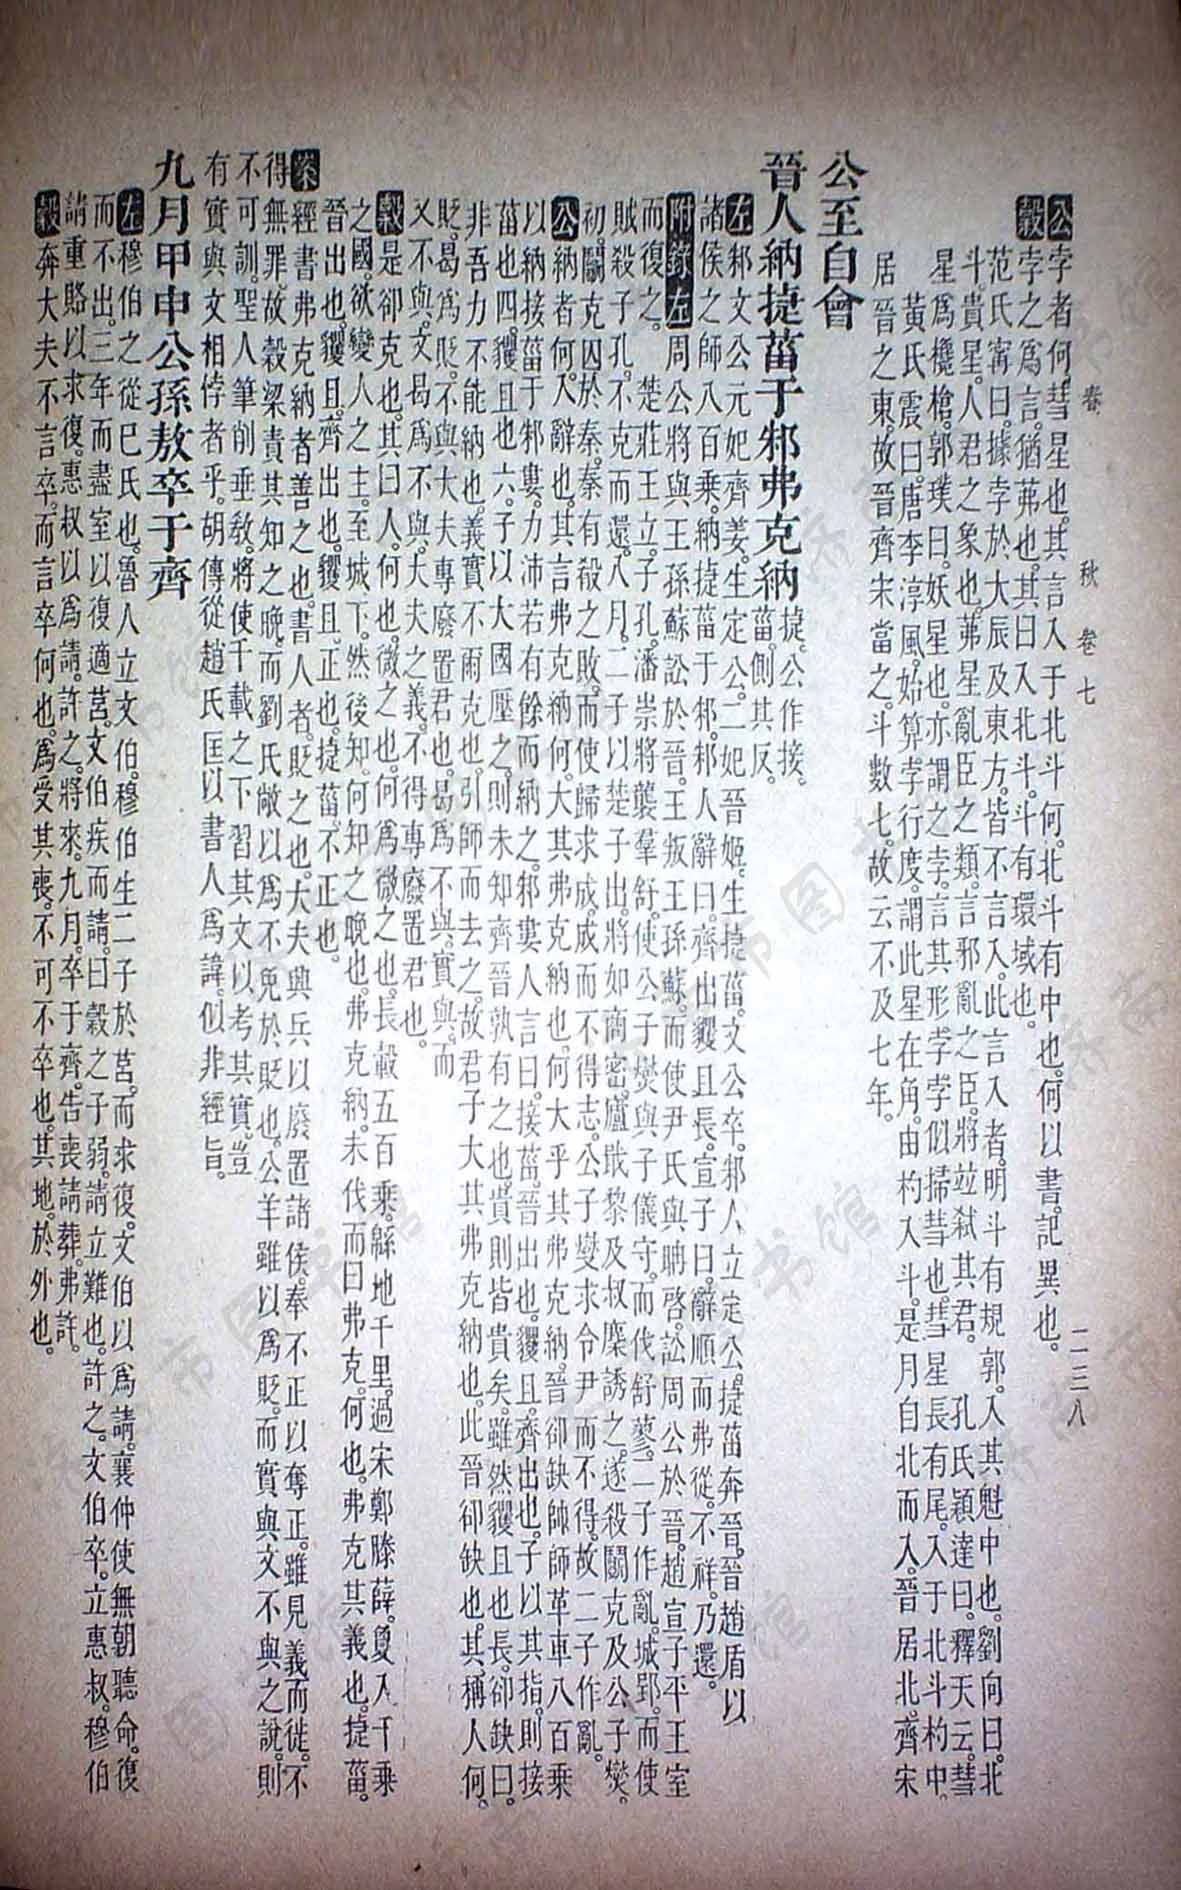 春秋 卷七 二三八
公孛者何彗星也其言入于北斗何北斗有中也何以書記異也
穀孛之爲言猶茀也其曰入北斗斗有環域也
范氏寗曰據孛於大辰及東方皆不言入此言入者明斗有規郭入其魁中也劉向曰北
斗貴星人君之象也茀星亂臣之類言邪亂之臣將並弑其君 孔氏穎達曰釋天云彗
星爲欃槍郭璞曰妖星也亦謂之孛言其形孛孛似掃彗也彗星長有尾入于北斗杓中
黃氏震曰唐李淳風始算孛行度謂此星在角由杓入斗是月自北而入晉居北齊宋
居晉之東故晉齊宋當之斗數七故云不及七年
公至自會
晉人納捷菑于邾弗克納捷公作接
菑側其反
左邾文公元妃齊姜生定公二妃晉姬生捷菑文公卒邾人立定公捷菑奔晉晉趙盾以
諸侯之師八百乘納捷菑于邾邾人辭曰齊出貜且長宣子曰辭順而弗從不祥乃還
附錄左周公將與王孫蘇訟於晉王叛王孫蘇而使尹氏與聃啓訟周公於晉趙宣子平王室
而復之 楚莊王立子孔潘崇將襲羣舒使公子燮與子儀守而伐舒蓼二子作亂城郢而使
賊殺子孔不克而還八月二子以楚子出將如商密廬戢黎及叔麇誘之遂殺鬭克及公子燮
初鬭克囚於秦秦有殽之敗而使歸求成成而不得志公子燮求令尹而不得故二子作亂
公納者何入辭也其言弗克納何大其弗克納也何大乎其弗克納晉卻缺帥師革車八百乘
以納接菑于邾婁力沛若有餘而納之邾婁人言曰接菑晉出也貜且齊出也子以其指則接
菑也四貜且也六子以大國壓之則未知齊晉孰有之也貴則皆貴矣雖然貜且也長卻缺曰
非吾力不能納也義實不爾克也引師而去之故君子大其弗克納也此晉卻缺也其稱人何
貶曷爲貶不與大夫專廢置君也曷爲不與實與而
文不與文曷爲不與大夫之義不得專廢置君也
穀是卻克也其曰人何也微之也何爲微之也長轂五百乘緜地千里過宋鄭滕薛夐入千乘
之國欲變人之主至城下然後知何知之晚也弗克納未伐而曰弗克何也弗克其義也捷菑
晉出也貜且齊出也貜且正也捷菑不正也
案經書弗克納者善之也書人者貶之也大夫興兵以廢置諸侯奉不正以奪正雖見義而徙不
得無罪故穀梁責其知之晚而劉氏敞以爲不免於貶也公羊雖以爲貶而實與文不與之說則
不可訓聖人筆削垂敎將使千載之下習其文以考其實豈
有實與文相悖者乎胡傳從趙氏匡以書人爲諱似非經旨
九月甲申公孫敖卒于齊
左穆伯之從已氏也魯人立文伯穆伯生二子於莒而求復文伯以爲請襄仲使無朝聽命復
而不出三年而盡室以復適莒文伯疾而請曰穀之子弱請立難也許之文伯卒立惠叔穆伯
請重賂以求復惠叔以爲請許之將來九月卒于齊告喪請葬弗許
穀奔大夫不言卒而言卒何也爲受其喪不可不卒也其地於外也